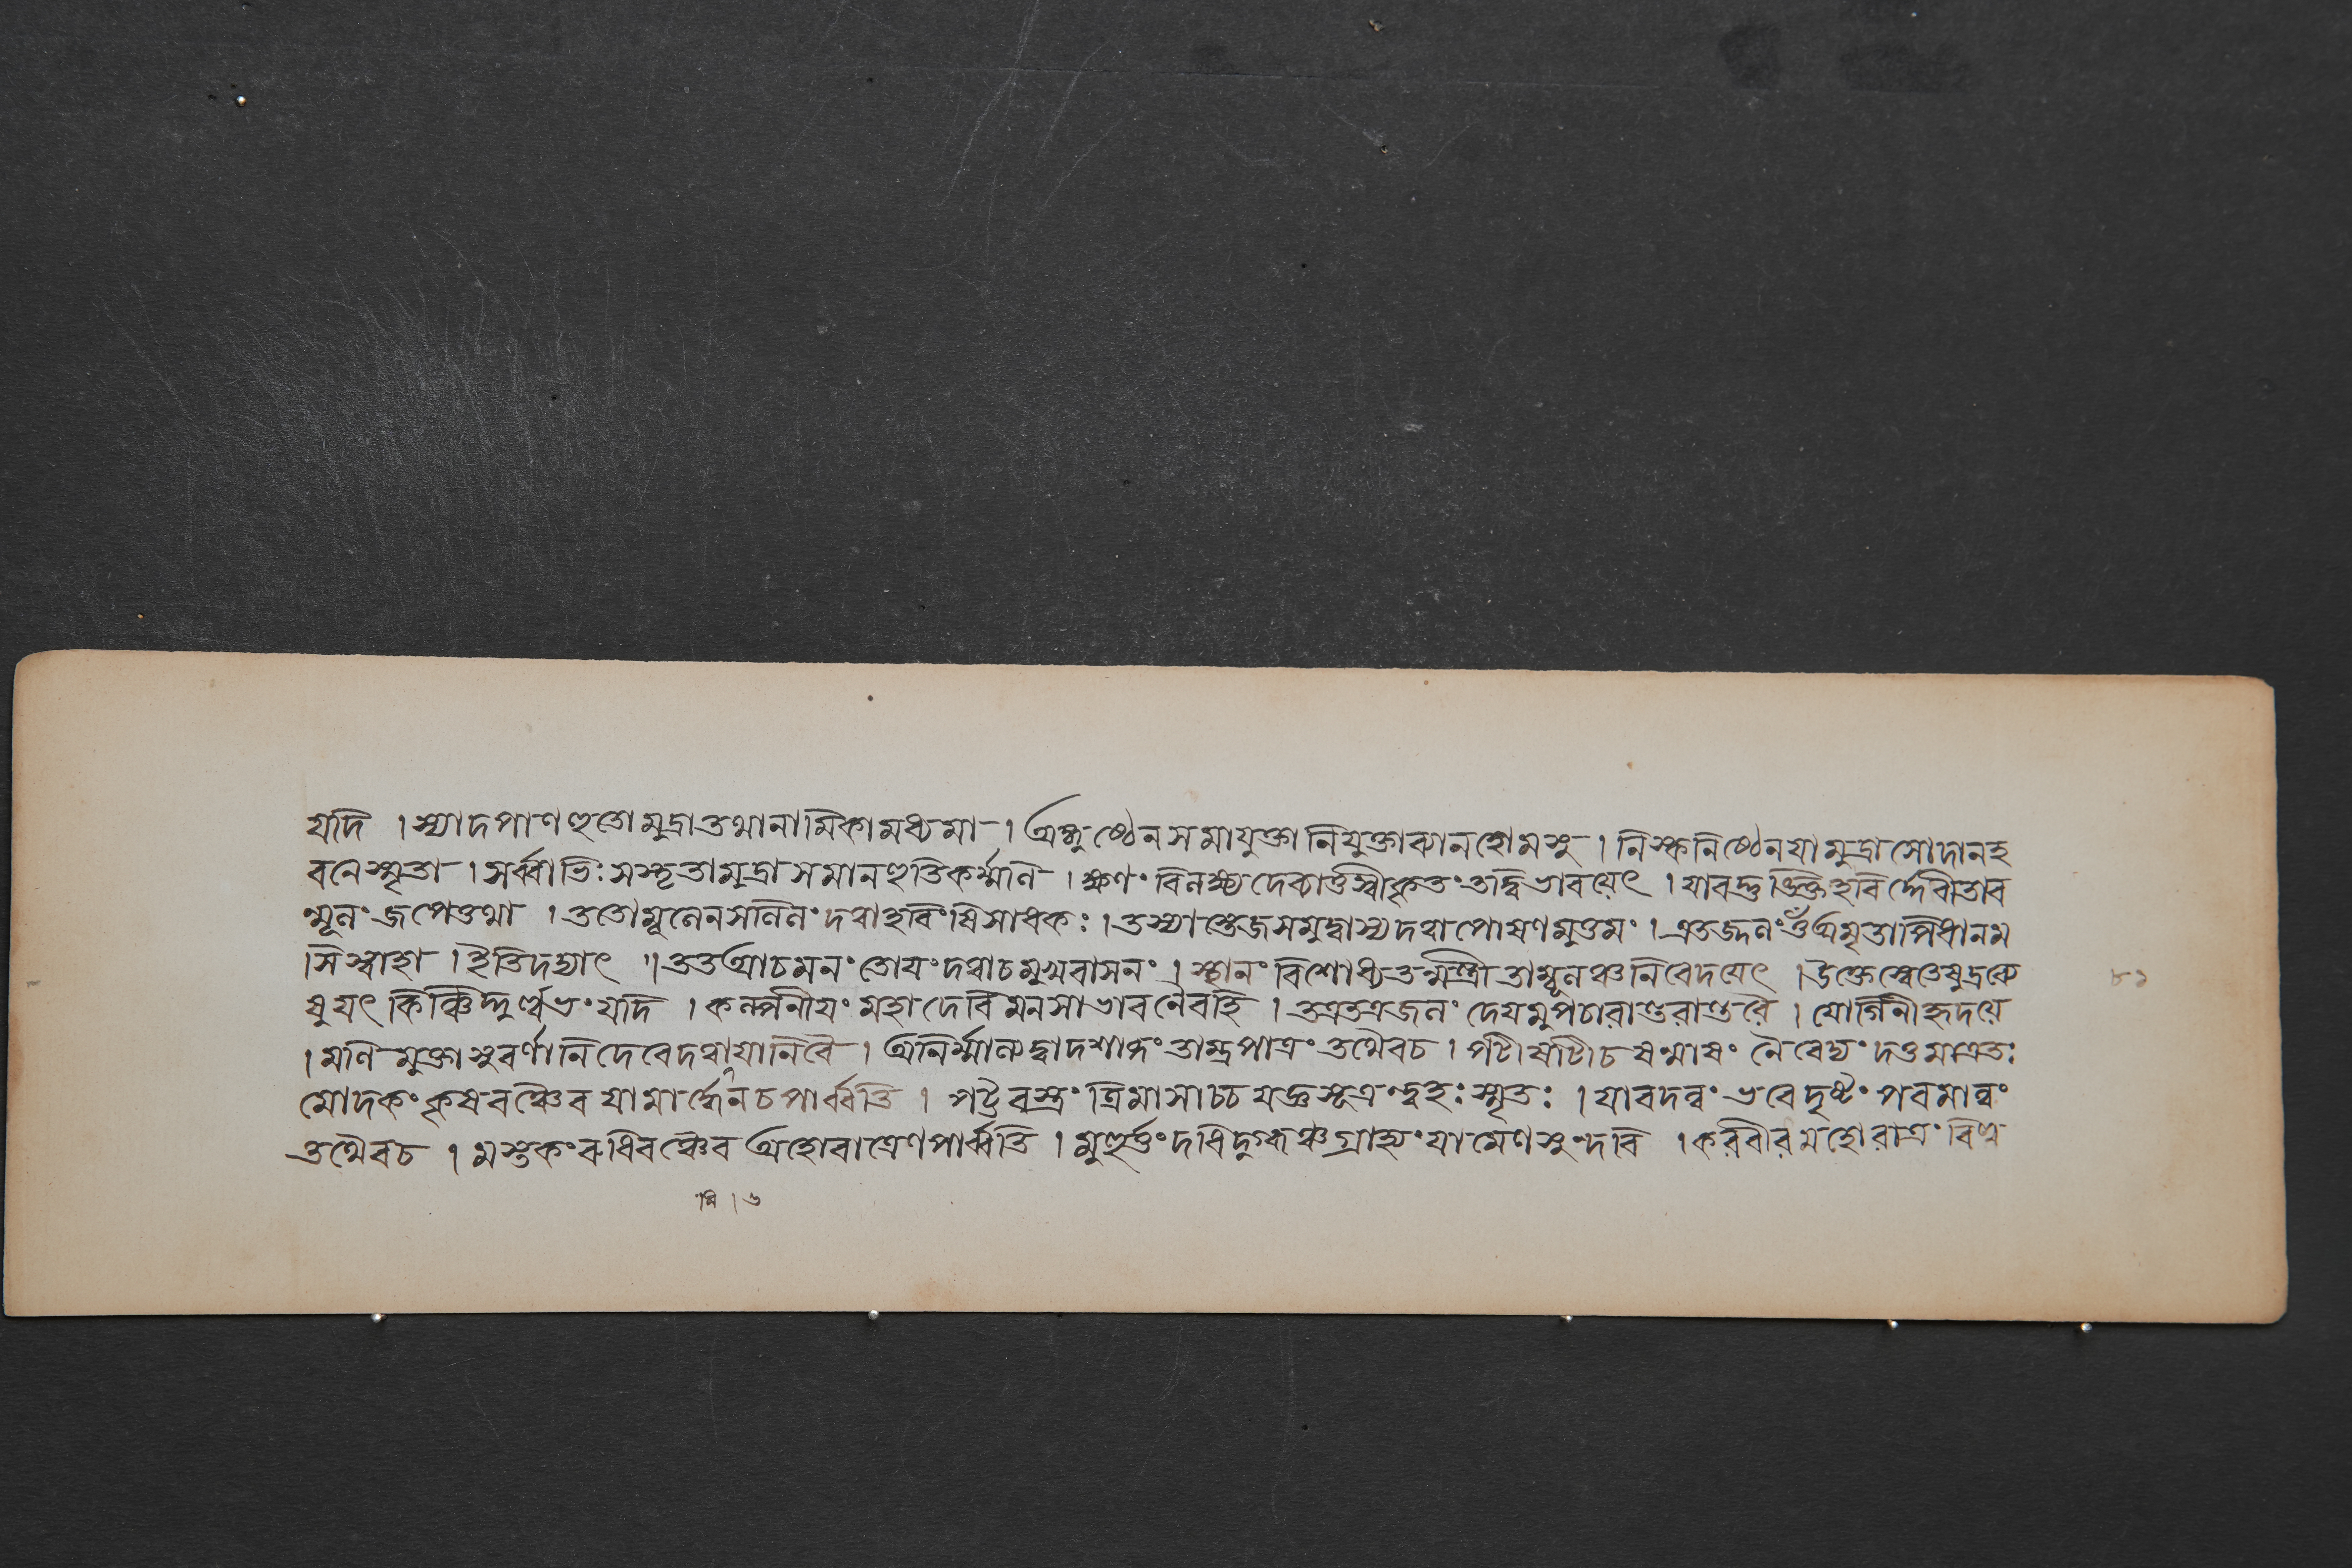 যদি । স্যাদপাণহুতো মুদ্রা তথানামিকামধ্যমা । অঙ্গুষ্ঠেন সমাযুক্তা নিযুক্তা ব্যানহোমসু । নিস্কনিষ্ঠেন যা মুদ্রা সোদানহ
বনে স্মৃতা । সর্ব্বাভিঃ সংহৃতা মুদ্রা সমানহুতিকর্ম্মণি । ক্ষণং বিলক্ষ্য দেব্যার্ত্তু স্বীকৃতং তদ্বিভাবয়েৎ । যাবদ্ভুঙ্ক্তে হবির্দ্দেবী তাব
ন্মূলং জপেত্তথা । ততো মূলেন সলিলং দত্বা হবিংষি সাধকঃ । তস্যাস্তেজ সমুদ্বাস্য দত্বা পোষণমুত্তমং । এতজ্জলং ওঁ অমৃতাপিধানম
সি স্বাহা । ইতি দদ্যাৎ ॥ তত আচমনং তোয়ং দত্বা চ মুখবাসনং । স্থানং বিশোধ্য তন্মন্ত্রী তাম্বূলঞ্চ নিবেদয়েৎ । উক্তেস্বেতেষু দ্রব্যে
ষু যৎ কিঞ্চিদ্দুর্ল্লভং যদি । কল্পনীয়ং মহাদেবি মনসা ভাবনৈবহি । তত্র তত্র জলং দেয়মুপচারান্তরান্তরে । যোগিনীহৃদয়ে
। মণিমুক্তাসুবর্ণানি দেবে দত্বা যানি বৈ । অনির্ম্মাল্যং দ্বাদশাব্দং তাম্রপাত্রং তথৈব চ । পটী ষটী চ ষন্মাষং নৈবেদ্যং দত্তমাত্রতঃ
মোদকং কৃষরঞ্চৈব যামার্দ্ধেন চ পার্ব্বতি । পট্টবস্ত্রং ত্রিমাসাচ্চ যজ্ঞসূত্রন্দ্বহঃ স্মৃতঃ । যাবদন্নং ভবেদুষ্টং পরমান্নং
তথৈব চ । মস্তকং রুধিরঞ্চৈব অহোরাত্রেণ পার্ব্বতি । মুহূর্ত্তং দধি দুগ্ধঞ্চ গ্রাহ্যং যামেণ সুন্দরি । করবীরমহোরাত্রং বিল্ব
৮১